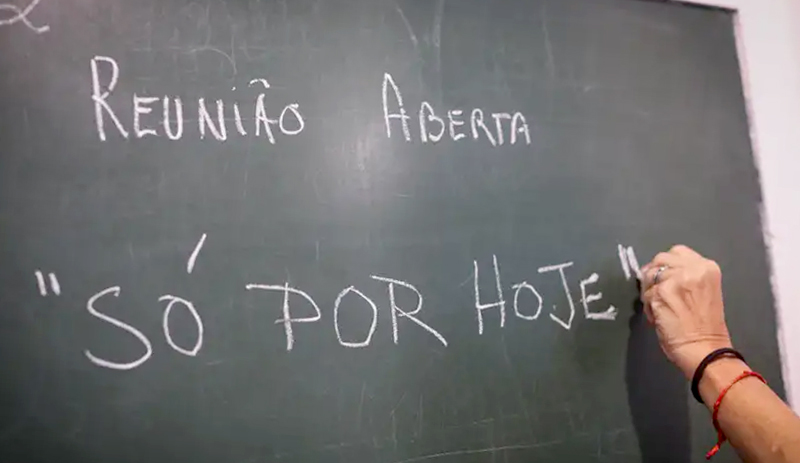 REUNIÃO ABERTA
"SÓ POR HOJE"